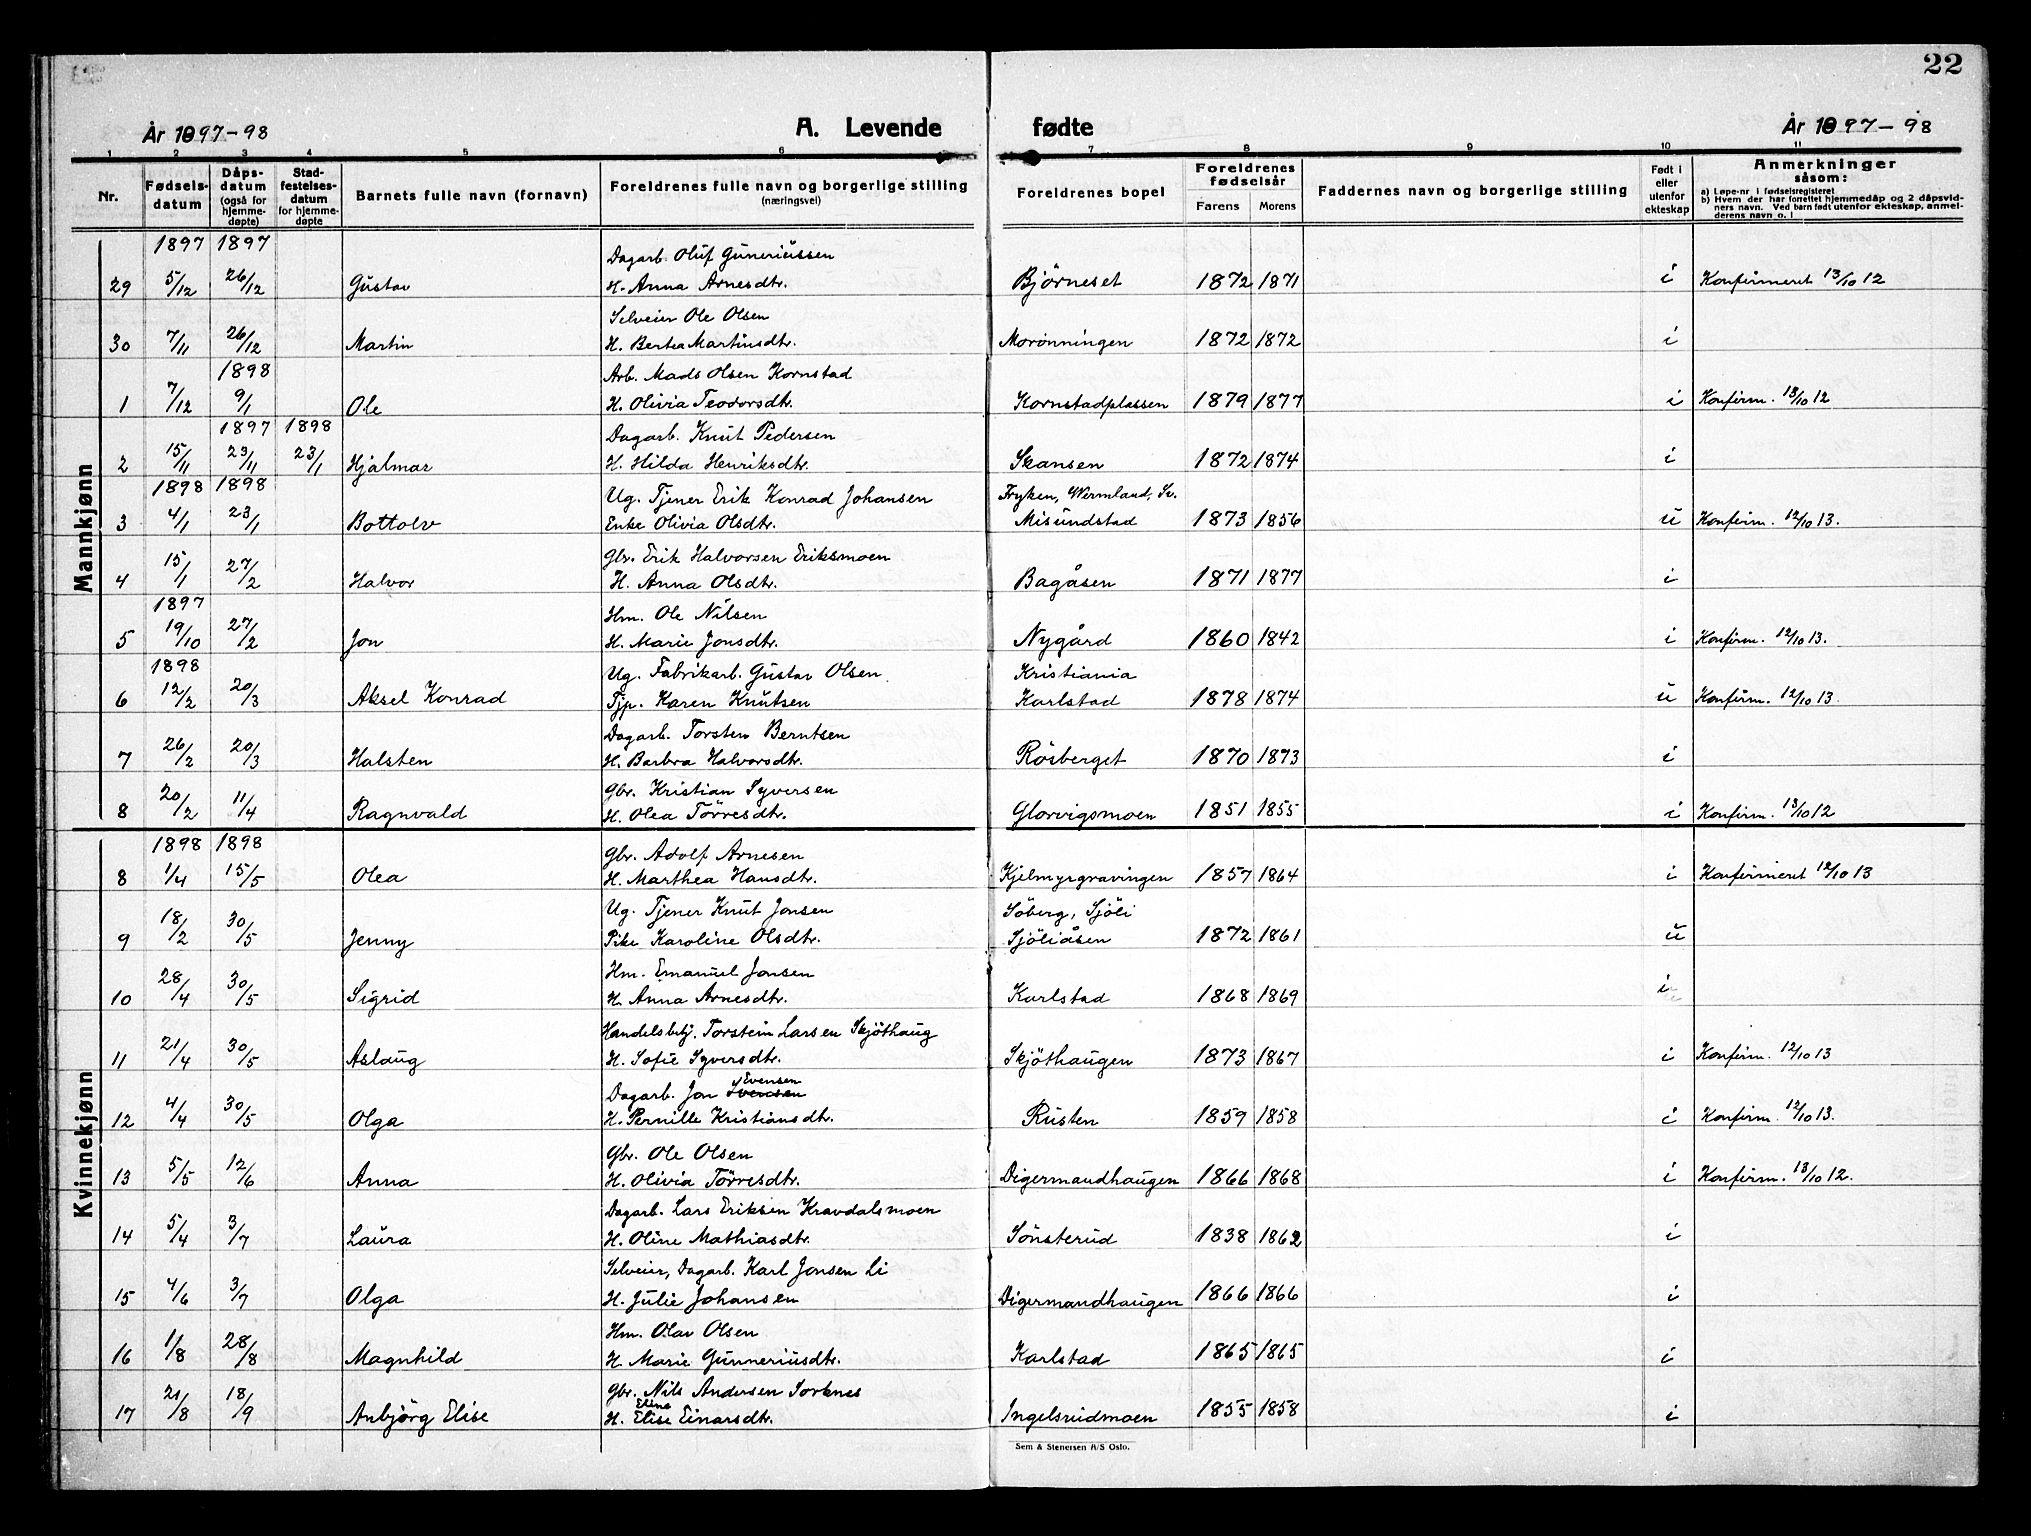 22
År 1897-98 A. Levende fødte År 1897-98
1 2 3 4 5 6 7 8 9 10 11
Nr. Fødsels-datum Dåps-datum (også for hjemme-døpte) Stad-festelses-datum for hjemme-døpte Barnets fulle navn (fornavn) Foreldrenes fulle navn og borgerlige stilling (næringsvei) Foreldrenes bopel Foreldrenes fødselsår Farens Morens Faddernes navn og borgerlige stilling Født i eller utenfor ekteskap Anmerkninger såsom:
a) Løpe-nr i fødselsregisteret
b) Hvem der har forrettet hjemmedåp og 2 dåpsvid-
ners navn. Ved barn født utenfor ekteskap, anmel-
derens navn o. l
Mannkjønn
1897 1897 Dagarb. Oluf Guneriussen
29 5/12 26/12 Gustav H. Anna Arnesdtr. Björneset 1872 1871 i Konfirmeret 13/10 12
Selveier Ole Olsen
30 7/11 26/12 Martin H. Bertea Martinsdtr. Morönningen 1872 1872 i
1898 Arb. Mads Olsen Kornstad
1 7/12 9/1 Ole H. Olivia Teodorsdtr. Kornstadplassen 1879 1877 i Konfirm. 13/10 12
1897 1898 Dagarb. Knut Pedersen
2 15/11 23/11 23/1 Hjalmar H. Hilda Henriksdtr. Skansen 1872 1874 i
1898 1898 Ug. Tjener Erik Konrad Johansen Fryken, Wermland, Sv.
3 4/1 23/1 Bottolv Enke Olivia Olsdtr. Misundstad 1873 1856 u Konfirm. 12/10 13.
Gbr. Erik Halvorsen Eriksmoen
4 15/1 27/2 Halvor H. Anna Olsdtr. Bagåsen 1871 1877 i
1897 Hm. Ole Nilsen
5 19/10 27/2 Jon H. Marie Jonsdtr. Nygård 1860 1842 i Konfirm. 12/10 13.
1898 Ug. Fabrikarb. Gustav Olsen Kristiania
6 12/2 20/3 Aksel Konrad Tjp. Karen Knutsen Karlstad 1878 1874 u Konfirm. 12/10 13.
Dagarb. Torsten Berntsen
7 26/2 20/3 Halsten H. Barbra Halvorsdtr. Rösberget 1870 1873 i
Gbr. Kristian Syversen
8 20/2 11/4 Ragnvald H. Olea Törresdtr. Glorvigsmoen 1851 1855 i Konfirm. 13/10 12
Kvinnekjønn
1898 1898 Gbr. Adolf Arnesen
8 1/4 15/5 Olea H. Marthea Hansdtr. Kjelmyrgravingen 1857 1864 i Konfirmeret 12/10 13
Ug. Tjener Knut Jonsen Söberg, Sjöli
9 18/2 30/5 Jenny Pike Karoline Olsdtr. Sjöliåsen 1872 1861 u
Hm. Emanuel Jonsen
10 28/4 30/5 Sigrid H. Anna Arnesdtr. Karlstad 1868 1869 i
Handelsbetj. Torstein Larsen Skjöthaug
11 21/4 30/5 Aslaug H. Sofie Syversdtr. Skjöthaugen 1873 1867 i Konfirm. 12/10 13
Evensen
Dagarb. Jon Svensen
12 4/4 30/5 Olga H. Pernille Kristiansdtr. Rusten 1859 1858 i Konfirm. 12/10 13.
Gbr. Ole Olsen
13 5/5 12/6 Anna H. Olivia Törresdtr. Digermandhaugen 1866 1868 i Konfirm. 13/10 12.
Dagarb. Lars Eriksen Kravdalsmoen
14 5/4 3/7 Laura H. Oline Mathiasdtr. Sönsterud 1838 1862 i
Selveier, Dagarb. Karl Jonsen Li
15 4/6 3/7 Olga H. Julie Johansen Digermandhaugen 1866 1866 i
Hm. Olav Olsen
16 1/8 28/8 Magnhild H. Marie Gunneriusdtr. Karlstad 1865 1865 i
Gbr. Nils Andersen Sorknes
Eline
17 21/8 18/9 Anbjörg Elise H. Elise Einarsdtr. Ingelsrudmoen 1855 1858 i
Sem & Stenersen A/S Oslo.